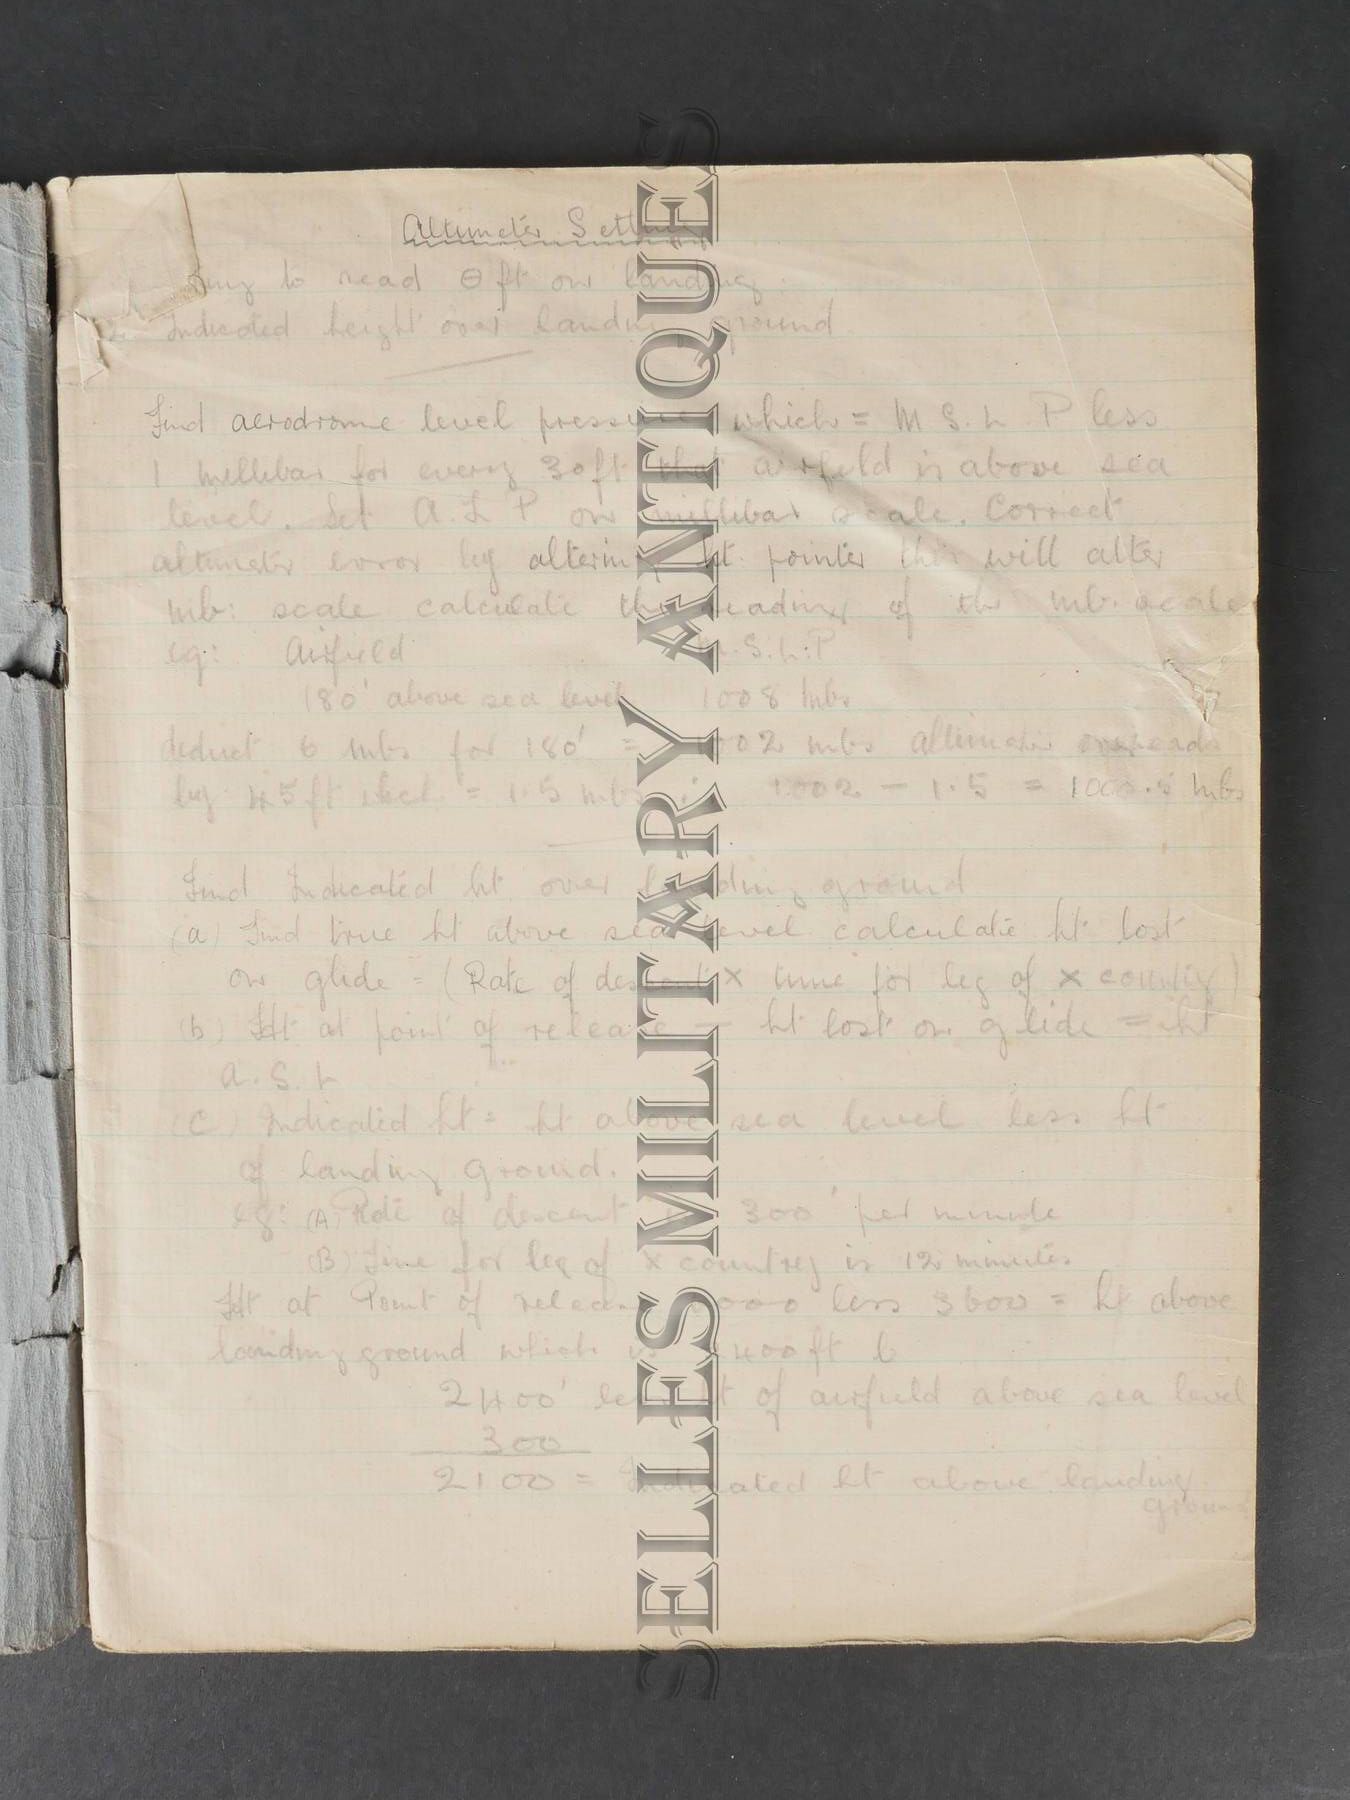 Altimeter Setting
to read 0 ft on landing.
2. Indicated height over landing ground
Find aerodrome level pressure which = M S. L. P less
1 millibar for every 30 ft that airfield is above sea
level. Set A. L P on millibar scale. Correct
altimeter error by altering ht. pointer this will alter
mb: scale calculate the reading of the mb. scale
eg: Airfield M.S.L:P
180' above sea level 1008 mbs
deduct 6 mbs for 180' = 1002 mbs altimeter overreads
by 45 ft = 1.5 mbs ∴ 1002 - 1.5 = 1000.5 mbs
Find Indicated ht over landing ground
(a) Find true ht above sea level. calculate ht lost
on glide = (Rate of descent x time for leg of x country)
(b) Ht at point of release - ht lost on glide = ht
A. S. L
(C) Indicated ht = ht above sea level less ht
of landing ground.
eg: (A) Rate of descent 300' per minute
(B) Time for leg of x country is 12 minutes
Ht at Point of release 6000 less 3600 = ht above
landing ground which is 2400 ft
2400' less ht of airfield above sea level
300
2100 = Indicated ht above landing
ground
SELLES MILITARY ANTIQUES